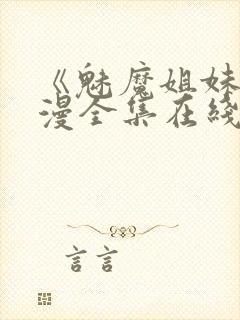 《魅魔姐妹
漫全集在线
言言